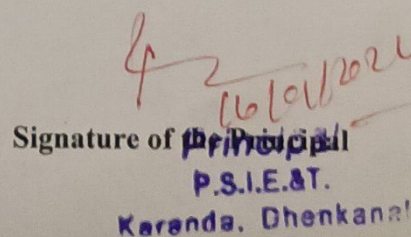 16/01/202
Signature of the Principal
Principal
P.S.I.E.&T.
Karanda, Dhenkanal